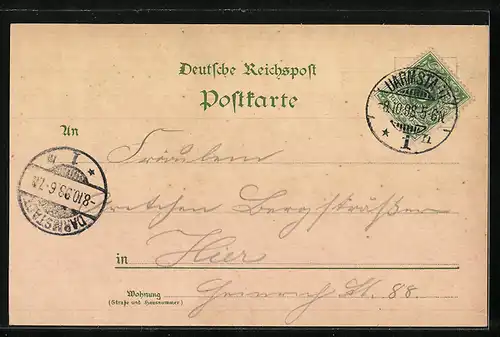 Deutsche Reichspost
Postkarte
DARMSTADT
-8.10.98.5-6N.
* 1 n
An
Fräulein
Gretchen Bergsträßer
in Hier
Wohnung
(Straße und Hausnummer)
Heinrich St. 88.
DARMSTADT
-8.10.98.6-7N.
* 1 n